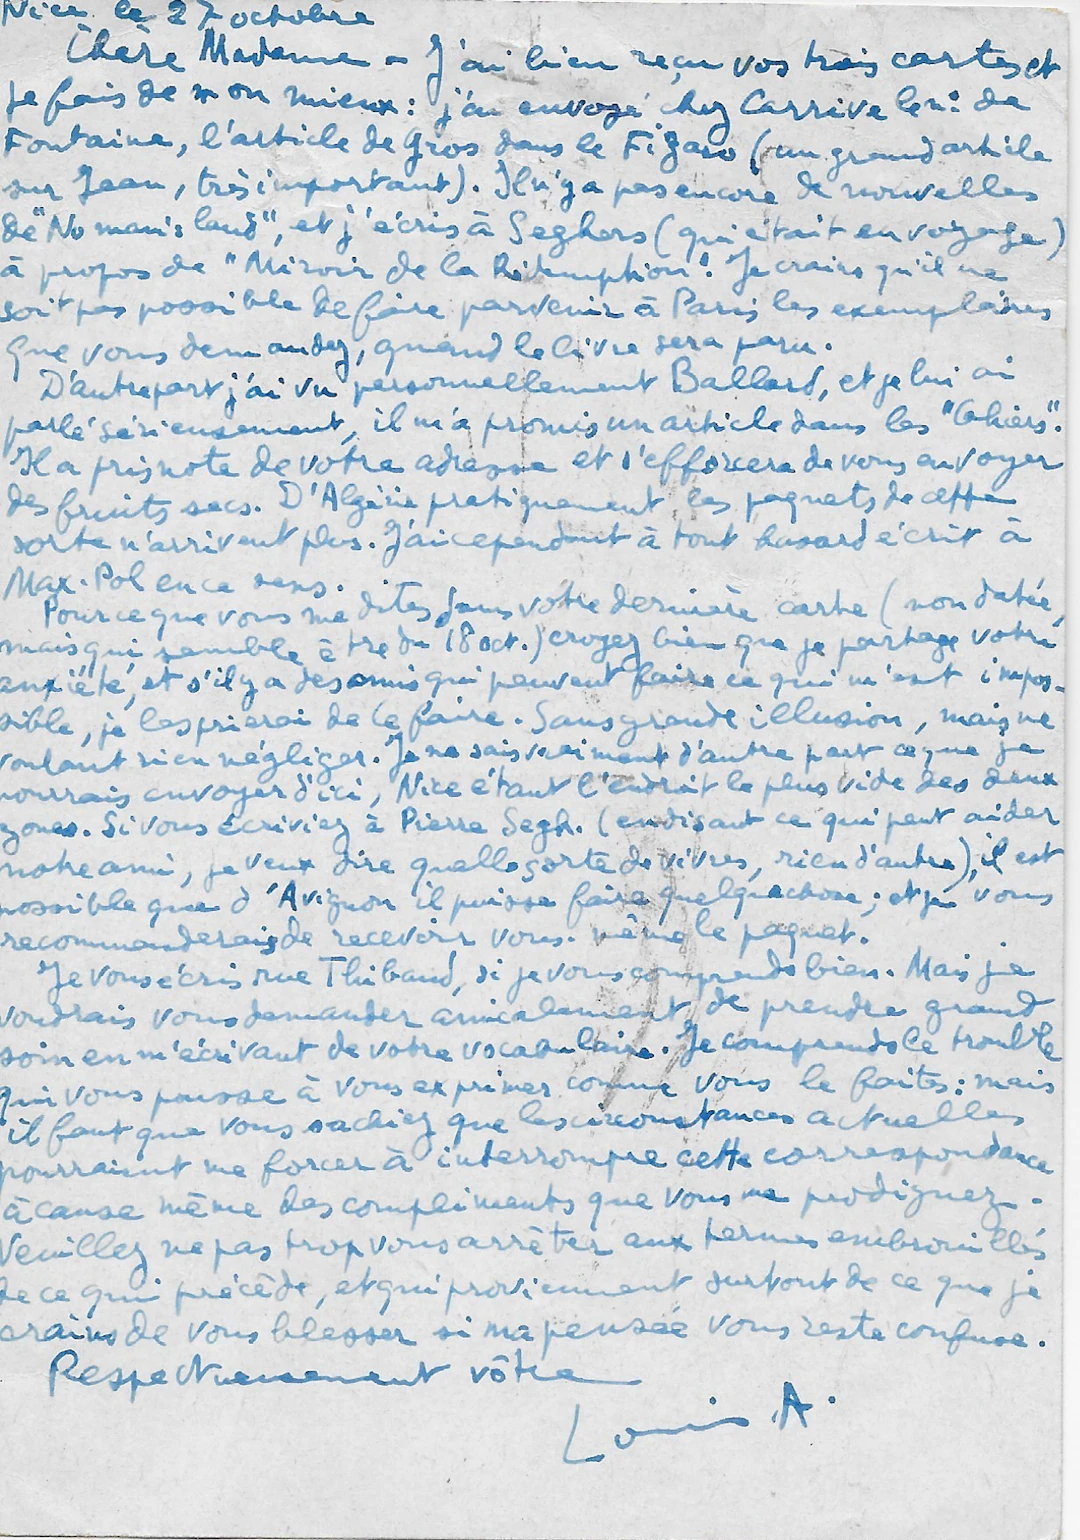 Nice, le 27 octobre
Chère Madame - J'ai bien reçu vos trois cartes, et
je fais de mon mieux : j'ai envoyé chez Carrive le n° de
Fontaine, l'article de Gros dans le Figaro (un grand article
sur Jean, très important). Il n'y a pas encore de nouvelles
de "No man's land", et j'écris à Seghers (qui était en voyage)
à propos de "Miroir de la Rédemption". Je crains qu'il ne
soit pas possible de faire parvenir à Paris les exemplaires
que vous demandez, quand le livre sera paru.
D'autre part j'ai vu personnellement Ballard, et je lui ai
parlé sérieusement, il m'a promis un article dans les "Cahiers".
Il a pris note de votre adresse et s'efforcera de vous envoyer
des fruits secs. D'Algérie pratiquement les paquets de cette
sorte n'arrivent plus. J'ai cependant à tout hasard écrit à
Max-Pol en ce sens.
Pour ce que vous me dites dans votre dernière carte (non datée,
mais qui semble être du 18 oct.) croyez bien que je partage votre
anxiété, et s'il y a des amis qui peuvent faire ce qui m'est impos-
sible, je les prierai de le faire. Sans grande illusion, mais ne
voulant rien négliger. Je ne sais vraiment d'autre part ce que je
pourrais envoyer d'ici, Nice étant l'endroit le plus vide des deux
zones. Si vous écriviez à Pierre Segh. (en disant ce qui peut aider
notre ami, je veux dire quelle sorte de vivres, rien d'autre), il est
possible que d'Avignon il puisse faire quelque chose ; et je vous
recommanderais de recevoir vous-même le paquet.
Je vous écris rue Thibaud, si je vous comprends bien. Mais je
voudrais vous demander amicalement de prendre grand
soin en m'écrivant de votre vocabulaire. Je comprends le trouble
qui vous pousse à vous exprimer comme vous le faites : mais
il faut que vous sachiez que les circonstances actuelles
pourraient me forcer à interrompre cette correspondance
à cause même des compliments que vous me prodiguez.
Veuillez ne pas trop vous arrêter aux termes embrouillés
de ce qui précède, et qui proviennent surtout de ce que je
crains de vous blesser si ma pensée vous reste confuse.
Respectueusement vôtre
Louis A.